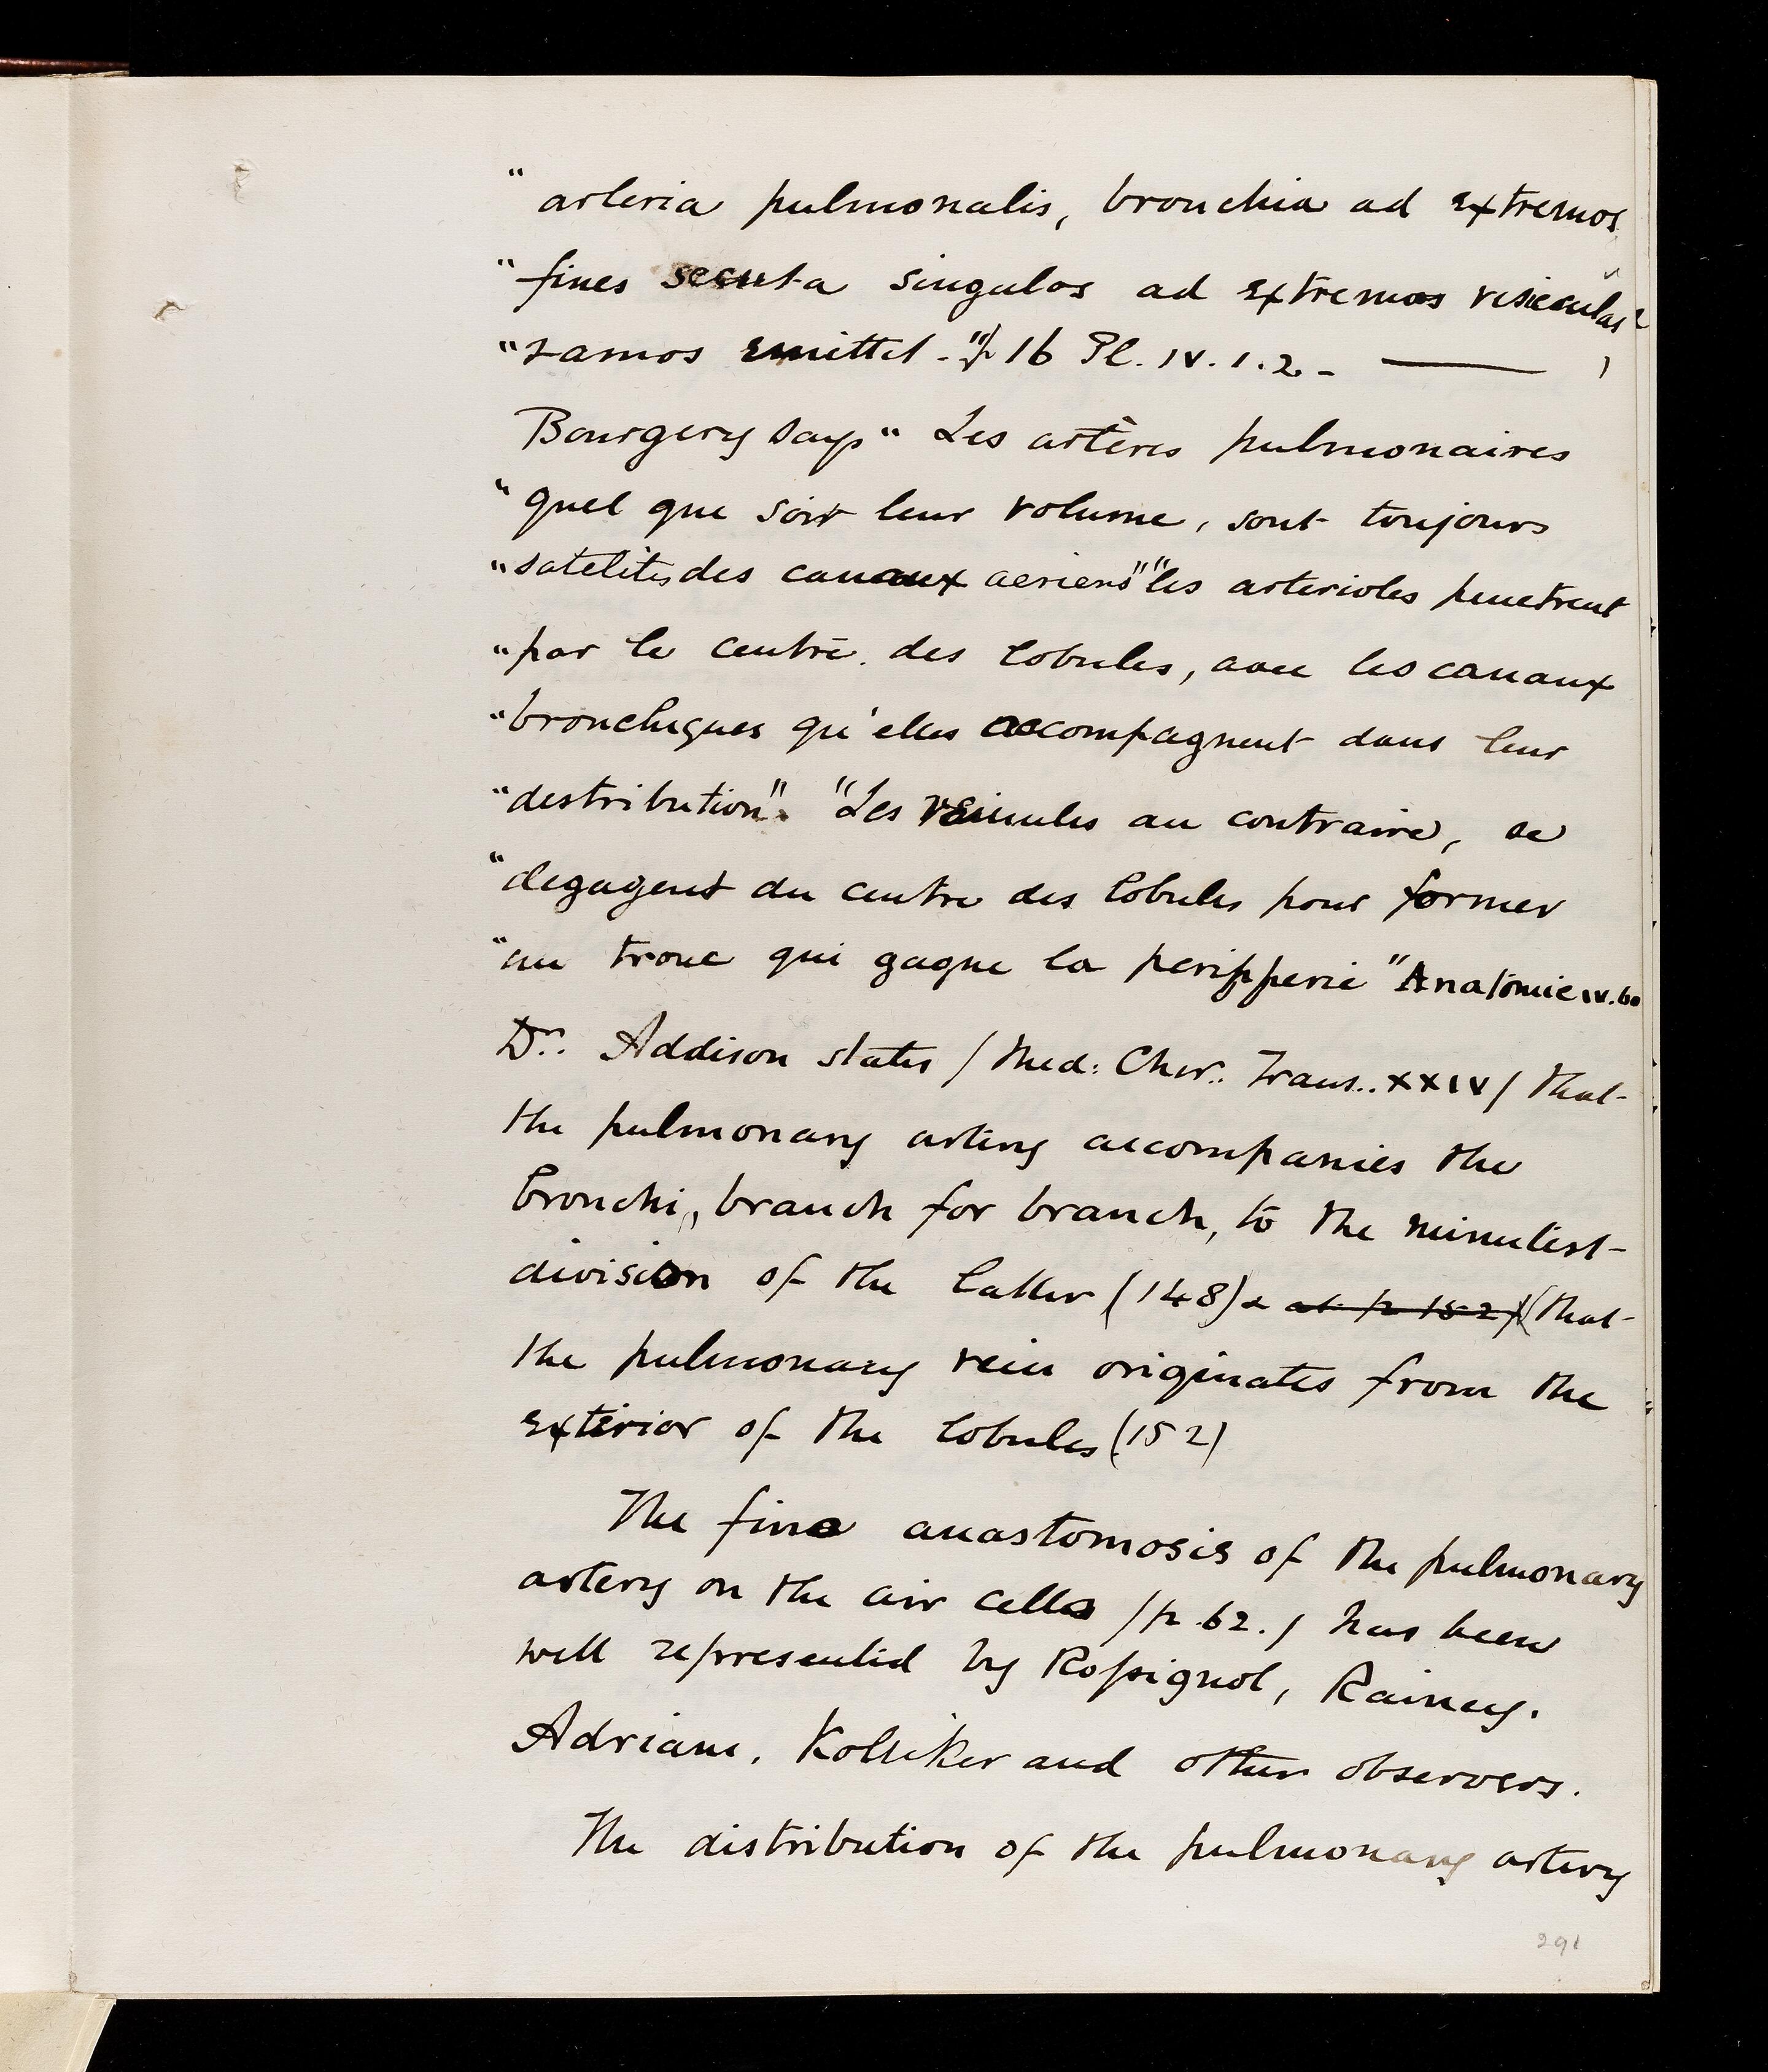 " arteria pulmonalis, bronchia ad extremos
" fines secuta singulos ad extremas vesiculas
" ramos emittet." p 16 Pl. IV. 1. 2 -
Bourgery says " Les artères pulmonaires
" quel que soit leur volume, sont toujours
" satelites des canaux aeriens" "les arterioles penetrent
" par le centre des lobules, avec les canaux
" bronchiques qu'elles accompagnent dans leur
" destribution". "Les veinules au contraire, se
" degagent du centre des lobules pour former
" un tronc qui gagne la peripperie " Anatomie IV. 60
Dr. Addison states / Med: Chir: Trans.. XXIV / that
the pulmonary artery accompanies the
bronchi, branch for branch, to the minutest
division of the latter (148) & at p 152) (that
the pulmonary vein originates from the
exterior of the lobules (152)
The fine anastomosis of the pulmonary
artery on the air cells /p 62./ has been
well represented by Rossignol, Rainey.
Adriani. Kolliker and other observers.
The distribution of the pulmonary artery
291